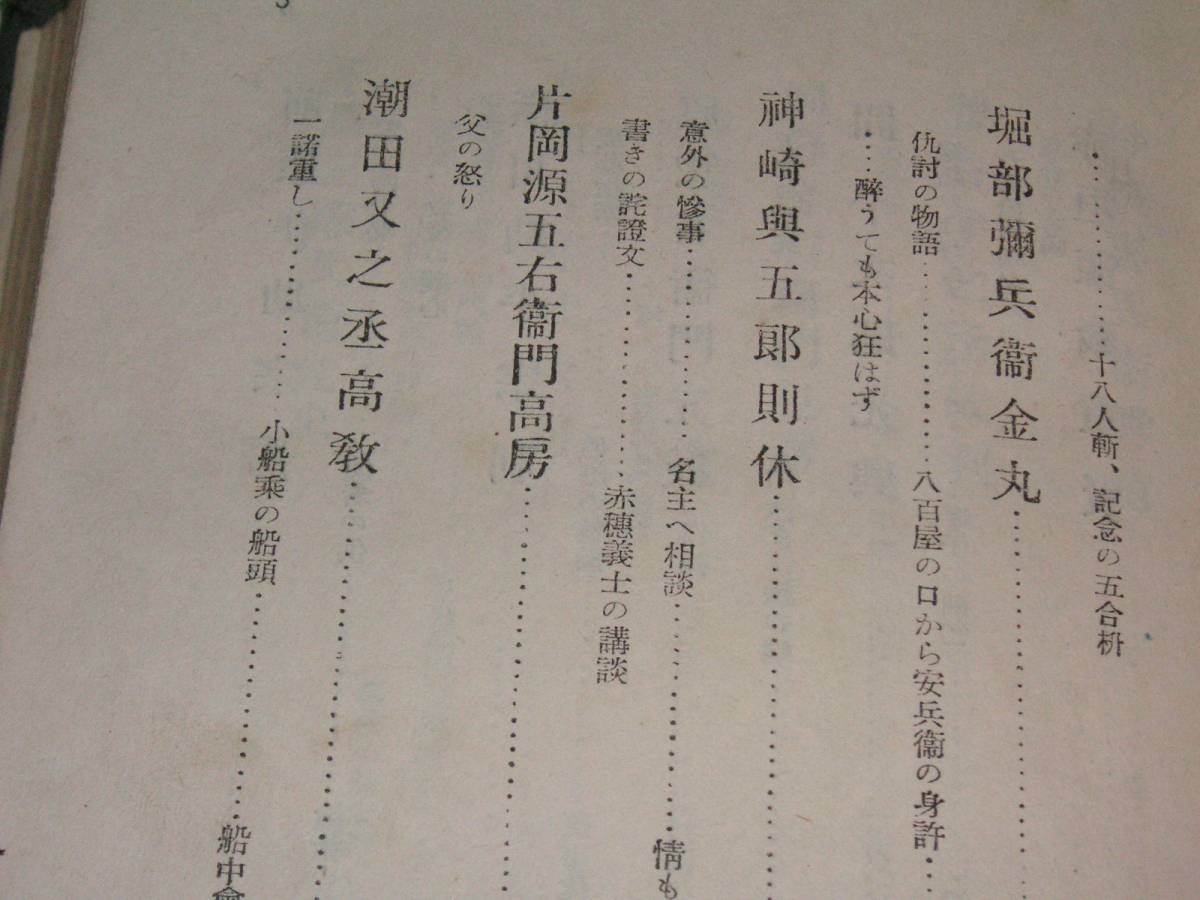 …………十八人斬、記念の五合枡
堀部彌兵衞金丸…………
仇討の物語…………八百屋の口から安兵衞の身許……
…醉うても本心狂はず
神崎與五郎則休…………
意外の慘事…………名主へ相談…………情も
書きの詫證文…………赤穗義士の講談
片岡源五右衞門高房…………
父の怒り
潮田又之丞高敎…………
一諾重し…………小船乘の船頭…………船中會